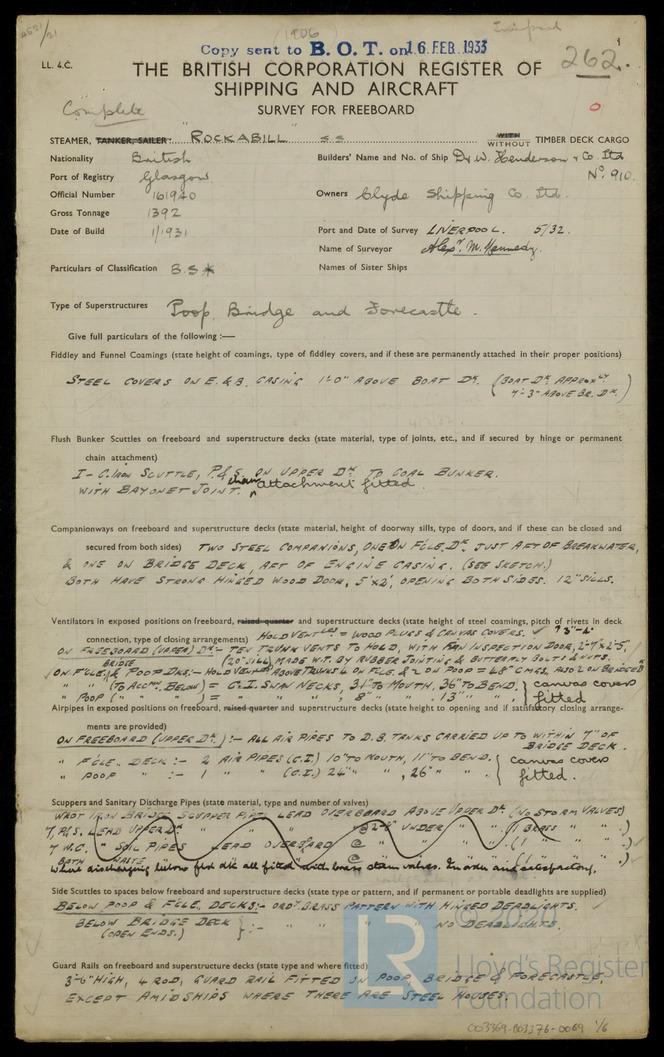 4621/21
(1906
Liverpool
Copy sent to B. O. T. on 16 FEB. 1933
262.
LL. 4.C.
THE BRITISH CORPORATION REGISTER OF
SHIPPING AND AIRCRAFT
Complete
SURVEY FOR FREEBOARD
STEAMER, TANKER, SAILER: "ROCKABILL" SS WITH WITHOUT TIMBER DECK CARGO
Nationality British
Builders' Name and No. of Ship D. & W. Henderson & Co Ltd
Nº. 910.
Port of Registry Glasgow
Official Number 161940
Owners Clyde Shipping Co. Ltd.
Gross Tonnage 1392
Date of Build 1/1931
Port and Date of Survey LIVERPOOL. 5/32.
Name of Surveyor Alexr. M. Kennedy.
Particulars of Classification B.S*
Names of Sister Ships
Type of Superstructures Poop, Bridge and Forecastle.
Give full particulars of the following :—
Fiddley and Funnel Coamings (state height of coamings, type of fiddley covers, and if these are permanently attached in their proper positions)
STEEL COVERS ON E. & B. CASING 1'-0" ABOVE BOAT DK. (BOAT DK. APPROXLY
7'-3" ABOVE BR. DK.)
Flush Bunker Scuttles on freeboard and superstructure decks (state material, type of joints, etc., and if secured by hinge or permanent
chain attachment)
1 - C. IRON SCUTTLE, P. & S. ON UPPER DK TO COAL BUNKER.
WITH BAYONET JOINT. chain attachment fitted.
Companionways on freeboard and superstructure decks (state material, height of doorway sills, type of doors, and if these can be closed and
secured from both sides) TWO STEEL COMPANIONS, ONE ON F'CLE. DK. JUST AFT OF BREAKWATER,
& ONE ON BRIDGE DECK, AFT OF ENGINE CASING. (SEE SKETCH.)
BOTH HAVE STRONG HINGED WOOD DOOR, 5'x2', OPENING BOTH SIDES. 12" SILLS.
Ventilators in exposed positions on freeboard, raised quarter and superstructure decks (state height of steel coamings, pitch of rivets in deck
connection, type of closing arrangements) HOLD VENTLRS = WOOD PLUGS & CANVAS COVERS.
ON FREEBOARD (UPPER) DK:- TEN TRUNK VENTS TO HOLD, WITH MAN INSPECTION DOOR, 2'-7"x2'-5",
(20" SILL) MADE W.T. BY RUBBER JOINTING & BUTTERFLY BOLTS & NUTS.
ON F'CLE, BRIDGE & POOP DKS:- HOLD VENTLRS ABOVE TRUNKS 4 ON F'CLE, & 2 ON POOP = 48" C'MGS. ALSO 2 ON BRIDGE DK
" " (TO ACCMN. BELOW) = C.I. SWAN NECKS, 34" TO MOUTH, 36" TO BEND. } canvas covers
" POOP ( " " ) = " " " 8" " " , 13" " " . } fitted
Airpipes in exposed positions on freeboard, raised quarter and superstructure decks (state height to opening and if satisfactory closing arrange-
ments are provided)
ON FREEBOARD (UPPER DK.) :- ALL AIR PIPES TO D.B. TANKS CARRIED UP TO WITHIN 7" OF
BRIDGE DECK.
" F'CLE. DECK :- 2 AIR PIPES (C.I.) 10" TO MOUTH, 11" TO BEND. { canvas covers
" POOP " :- 1 " " (C.I.) 24" " , 26" " " . { fitted.
Scuppers and Sanitary Discharge Pipes (state material, type and number of valves)
WROT IRON BRIDGE SCUPPER PIPES LEAD OVERBOARD ABOVE UPPER DK. (NO STORM VALVES)
7, P. & S. LEAD UPPER DK " " " @ UNDER " " (1 BRASS " " .)
7 W.C. " SOIL PIPES LEAD OVERBOARD @ " " " (1 " " " .)
BATH WASTE @
Side Scuttles to spaces below freeboard and superstructure decks (state type or pattern, and if permanent or portable deadlights are supplied)
BELOW POOP & F'CLE. DECKS:- ORDY. BRASS PATTERN WITH HINGED DEADLIGHTS.
BELOW BRIDGE DECK } :- " " " NO DEADLIGHTS.
(OPEN ENDS.)
Guard Rails on freeboard and superstructure decks (state type and where fitted)
3'-6" HIGH, 4 ROD, GUARD RAIL FITTED ON POOP, BRIDGE & FORECASTLE,
EXCEPT AMIDSHIPS WHERE THERE ARE STEEL HOUSES.
LR
© 2020
Lloyd's Register
Foundation
003369-003376-0069 1/6